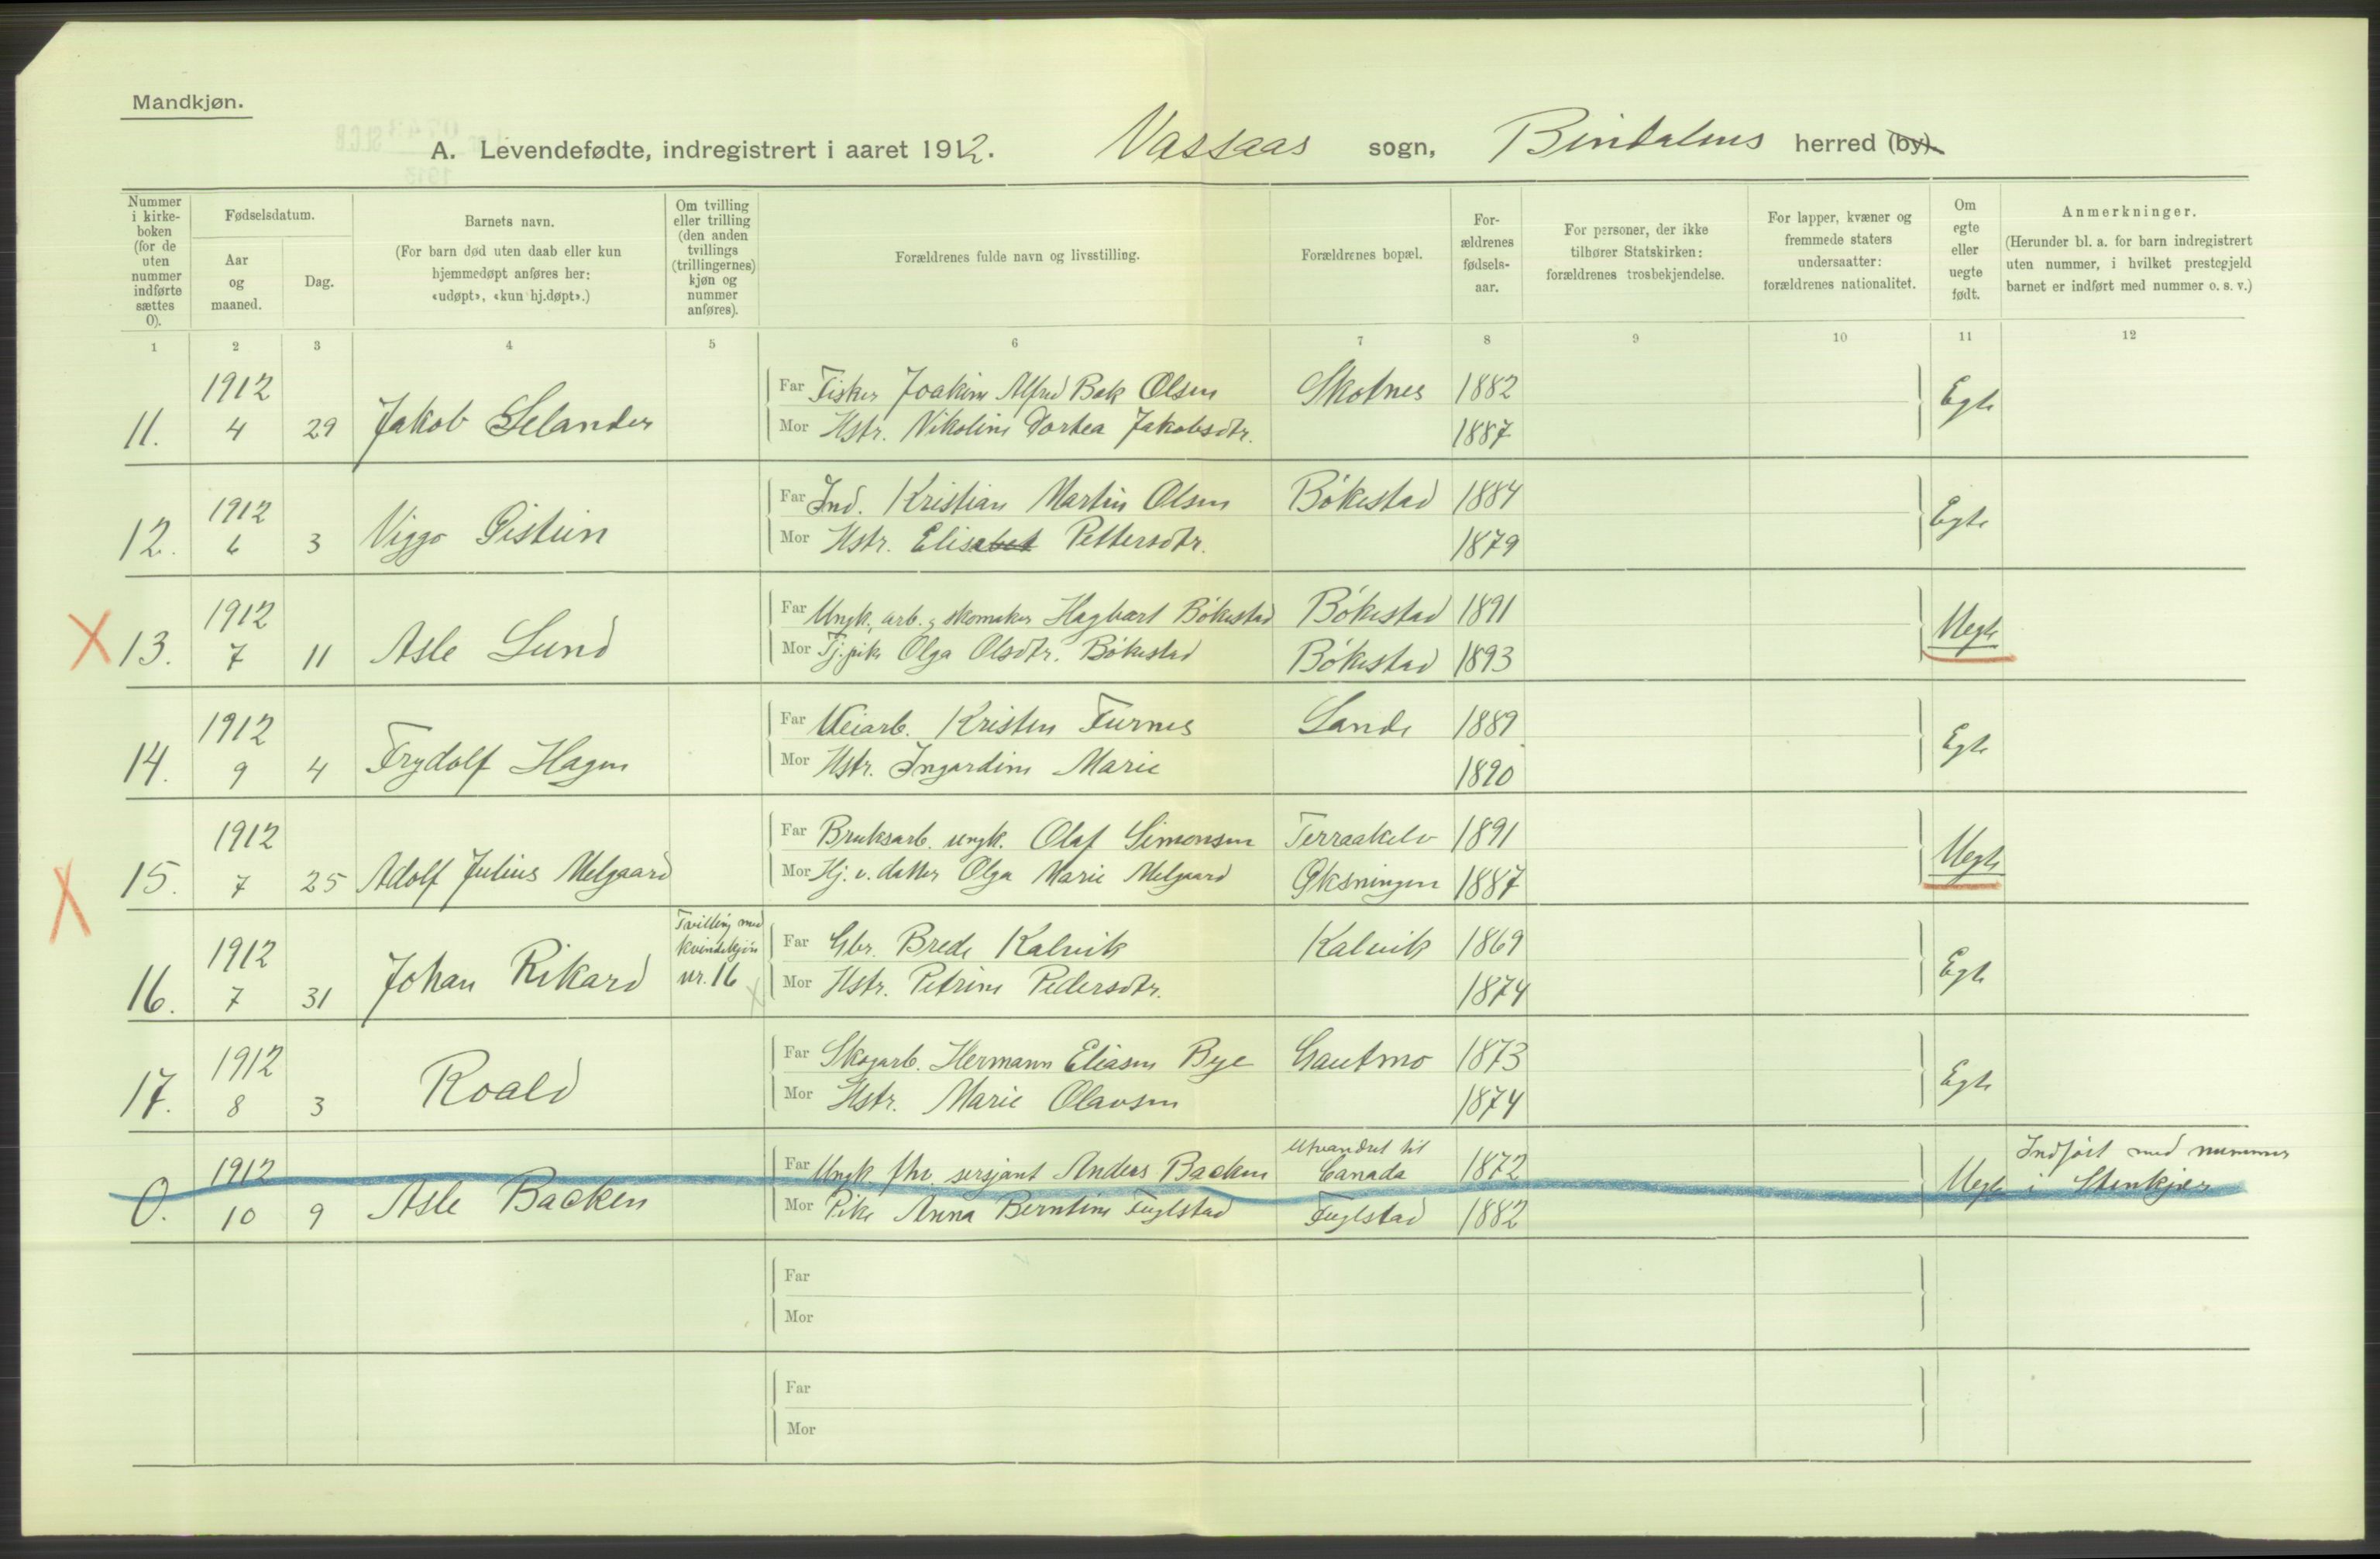 Mandkjøn.
A. Levendefødte, indregistrert i aaret 1912. Vassaas sogn, Bindalens herred (by).
Nummer i kirke-boken (for de uten nummer indførte sættes 0).
Fødselsdatum.
Aar og maaned.
Dag.
Barnets navn.
(For barn død uten daab eller kun hjemmedøpt anføres her: «udøpt», «kun hj.døpt».)
Om tvilling eller trilling (den anden tvillings (trillingernes) kjøn og nummer anføres).
Forældrenes fulde navn og livsstilling.
Forældrenes bopæl.
For-ældrenes fødsels-aar.
For personer, der ikke tilhører Statskirken: forældrenes trosbekjendelse.
For lapper, kvæner og fremmede staters undersaatter: forældrenes nationalitet.
Om egte eller uegte født.
Anmerkninger.
(Herunder bl. a. for barn indregistrert uten nummer, i hvilket prestegjeld barnet er indført med nummer o. s. v.)
1 2 3 4 5 6 7 8 9 10 11 12
1912 Far Fisker Joakim Alfred Bak Olsen Skotnes 1882
11. 4 29 Jakob Selander Mor Hstr. Nikoline Dortea Jakobsdtr. 1887 Egte
1912 Far Ind. Kristian Martin Olsen Bökestad 1884
12. 6 3 Viggo Eistein Mor Hstr. Elisabet Pettersdtr. 1879 Egte
1912 Far Ungk. arb. og skomaker Hagbart Bökestad Bökestad 1891
X 13. 7 11 Asle Lund Mor Tj.pike Olga Olsdtr. Bökestad Bökestad 1893 Uegte
1912 Far Veiarb. Kristen Furnes Lande 1889
14. 9 4 Frydolf Hagen Mor Hstr. Ingardine Marie 1890 Egte
1912 Far Bruksarb. ungk. Olaf Simonsen Terraakelv 1891
X 15. 7 25 Adolf Julius Melgaard Mor Hj. v. datter Olga Marie Melgaard Øksningen 1887 Uegte
1912 Tvilling med kvindekjön nr. 16 Far Gbr. Brede Kalvik Kalvik 1869
16. 7 31 Johan Rikard Mor Hstr. Petrine Pedersdtr. 1874 Egte
1912 Far Skogarb. Hermann Eliasen Bye Gautmo 1873
17. 8 3 Roald Mor Hstr. Marie Olausen 1874 Egte
1912 Far Ungk. fhv. sersjant Anders Backen Utvandret til Canada 1872 Indført med nummer
0. 10 9 Asle Backen Mor Pike Anna Berntine Fuglstad Fuglstad 1882 Uegte i Stenkjær
Far
Mor
Far
Mor